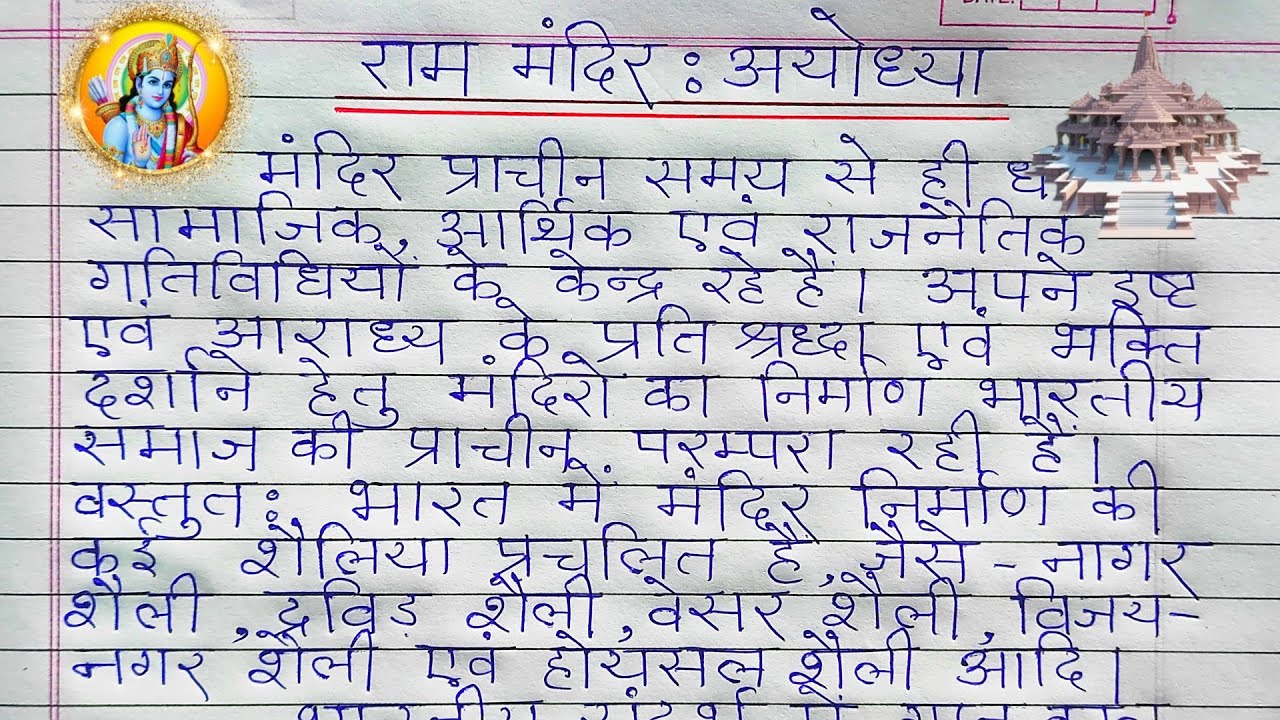 राम मंदिर : अयोध्या
मंदिर प्राचीन समय से ही
सामाजिक, आर्थिक एवं राजनैतिक
गतिविधियों के केन्द्र रहे है। अपने इष्ट
एवं आराध्य के प्रति श्रध्दा एवं भक्ति
दर्शाने हेतु मंदिरो का निर्माण भारतीय
समाज की प्राचीन परम्परा रही है।
वस्तुतः भारत में मंदिर निर्माण की
कई शैलिया प्रचलित है, जैसे - नागर
शैली, द्रविड़ शैली, वेसर शैली, विजय-
नगर शैली एवं होयसल शैली आदि।